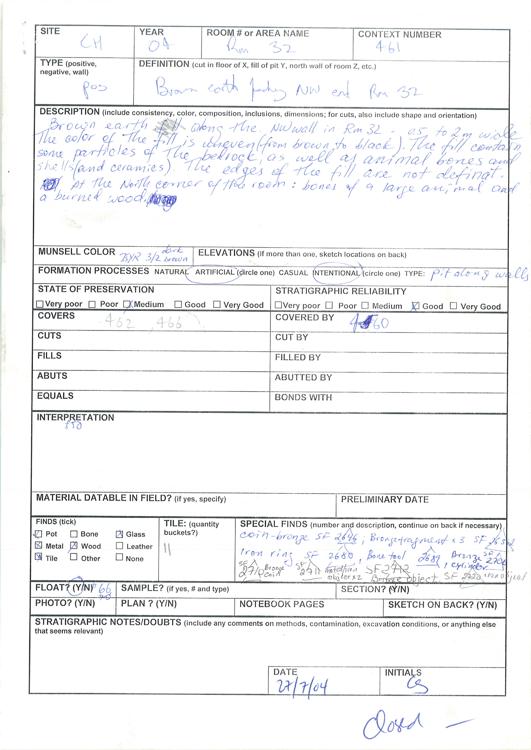 SITE CH
YEAR 04
ROOM # or AREA NAME Rm 32
CONTEXT NUMBER 461
TYPE (positive, negative, wall) pos
DEFINITION (cut in floor of X, fill of pit Y, north wall of room Z, etc.)
Brown earth NW end Rm 32
DESCRIPTION (include consistency, color, composition, inclusions, dimensions; for cuts, also include shape and orientation)
Brown earth along the NW wall in Rm 32. 05 to 2m wide
The color of the fill is uneven (from brown to black). The fill contain
some particles of the bedrock, as well as animal bones and
shells (and ceramics). The edges of the fill are not definat.
At the North corner of the room: bones of a large animal and
a burned wood
MUNSELL COLOR 3/2 dark brown
ELEVATIONS (if more than one, sketch locations on back)
FORMATION PROCESSES NATURAL ARTIFICIAL (circle one) CASUAL INTENTIONAL (circle one) TYPE: pit along walls
STATE OF PRESERVATION
STRATIGRAPHIC RELIABILITY
Very poor Poor Medium Good Very Good
Very poor Poor Medium Good Very Good
COVERS 462, 466
COVERED BY 460
CUTS
CUT BY
FILLS
FILLED BY
ABUTS
ABUTTED BY
EQUALS
BONDS WITH
INTERPRETATION
MATERIAL DATABLE IN FIELD? (if yes, specify)
PRELIMINARY DATE
FINDS (tick)
Pot Bone Glass
Metal Wood Leather
Tile Other None
TILE: (quantity buckets?)
11
SPECIAL FINDS (number and description, continue on back if necessary)
coin-bronze SF 2696; Bronze fragment x3 SF
Iron ring SF 2680, Bone tool 2689 Bronze cylinder SF 2706
SF 2710 Bronze coin SF 2711 SF 2712 Bronze object SF iron object
FLOAT? (Y/N) 66
SAMPLE? (if yes, # and type)
SECTION? (Y/N)
PHOTO? (Y/N)
PLAN ? (Y/N)
NOTEBOOK PAGES
SKETCH ON BACK? (Y/N)
STRATIGRAPHIC NOTES/DOUBTS (include any comments on methods, contamination, excavation conditions, or anything else
that seems relevant)
DATE
27/7/04
INITIALS
Closed —